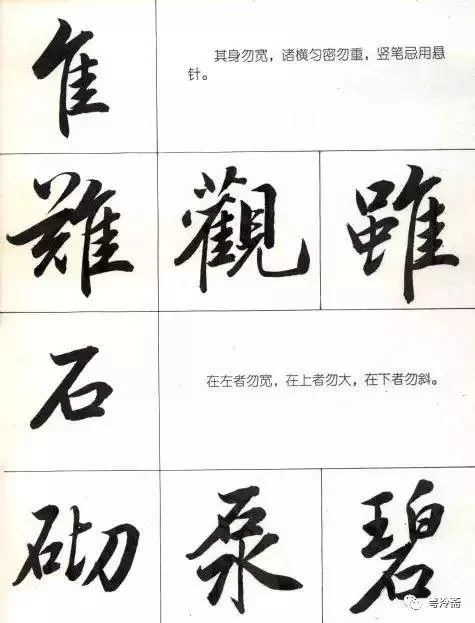 隹
其身勿宽，诸横匀密勿重，竖笔忌用悬
针。
難 觀 雖
石
在左者勿宽，在上者勿大，在下者勿斜。
砌 泵 碧
粤泠斋